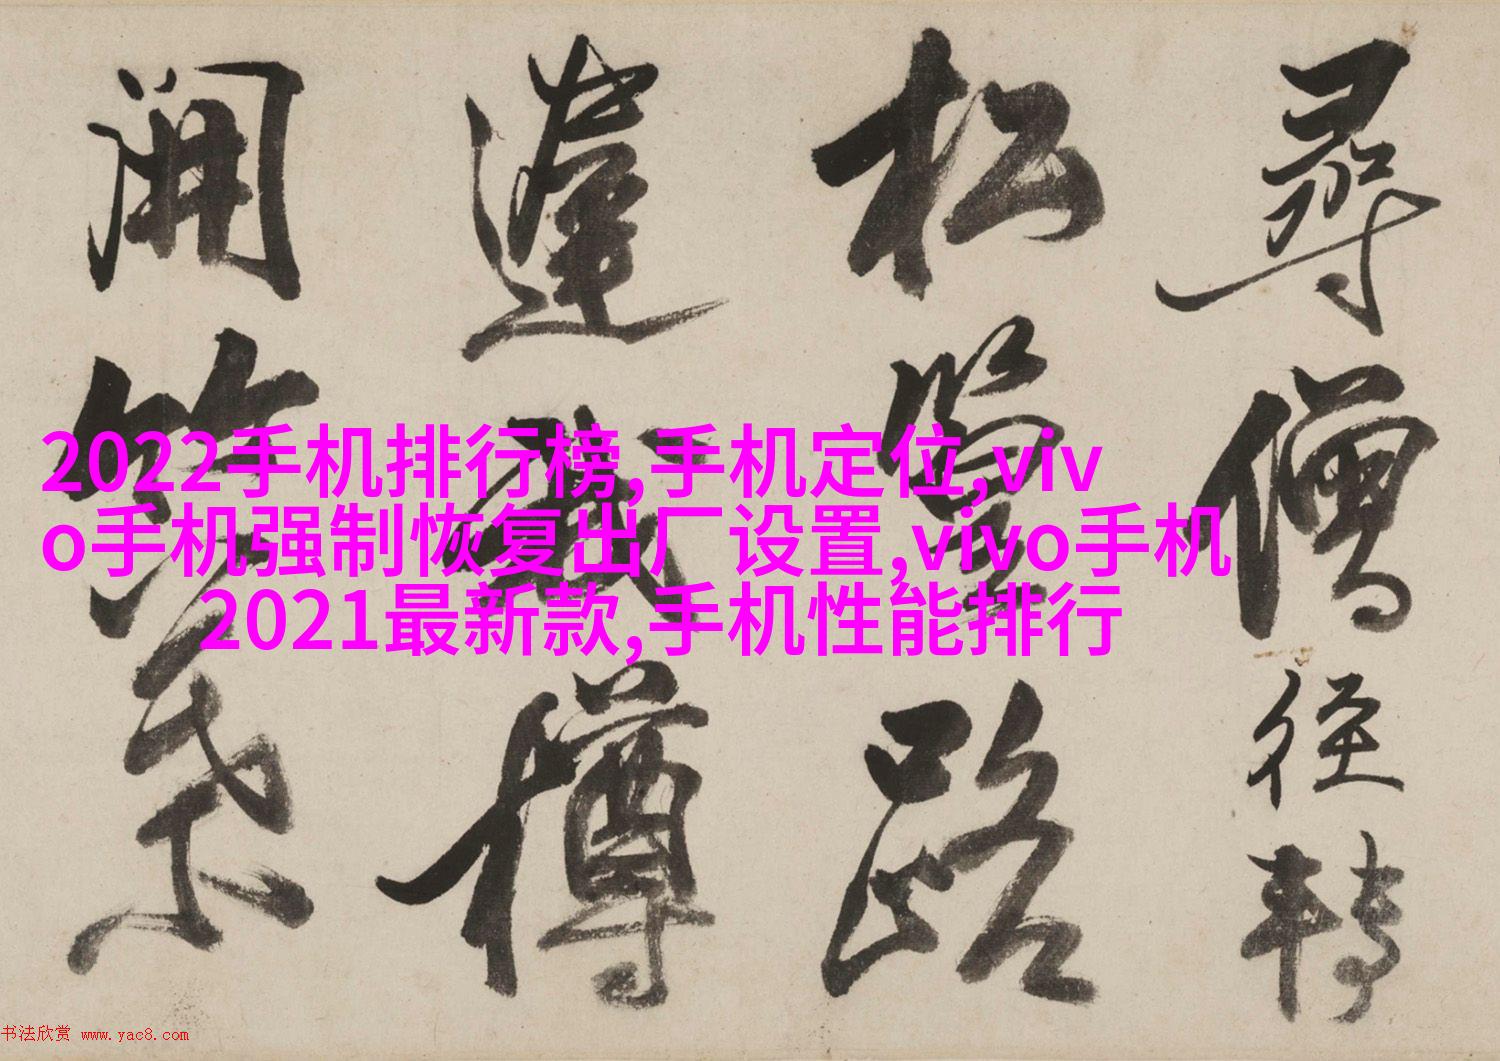 尋僧徑轉
松堂路
蓬
樽
開
2022手机排行榜,手机定位,viv
o手机强制恢复出厂设置,vivo手机
2021最新款,手机性能排行
书法欣赏 www.yac8.com